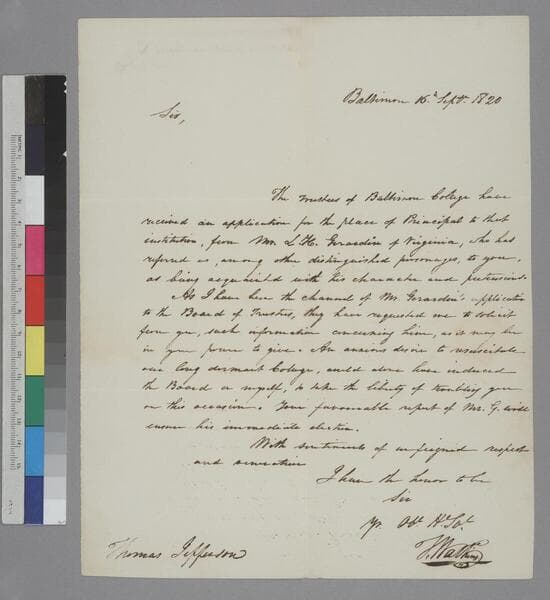 Baltimore 16th Septr. 1820
Sir,
The Trustees of Baltimore College have
received an application for the place of Principal to that
institution, from Mr. L. H. Girardin of Virginia, who has
referred us, among other distinguished personages, to you,
as being acquainted with his character and pretensions.
As I have been the channel of Mr Girardin's application
to the Board of Trustees, they have requested me to solicit
from you, such information concerning him, as it may be
in your power to give. An anxious desire to resuscitate
our long dormant College, could alone have induced
the Board or myself, to take the liberty of troubling you
on this occasion. Your favourable report of Mr. G. will
ensure his immediate election.
With sentiments of unfeigned respect
and veneration
I have the honor to be
Sir
Yr. Obt. Hl. Svt.
T. Watkins
Thomas Jefferson